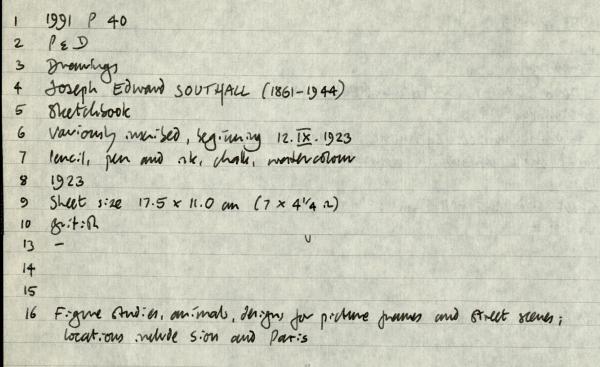 1 1991 P 40
2 P & D
3 Drawings
4 Joseph Edward SOUTHALL (1861-1944)
5 Sketchbook
6 Variously inscribed, beginning 12.IX.1923
7 Pencil, pen and ink, chalk, watercolour
8 1923
9 Sheet size 17.5 x 11.0 cm (7 x 4 1/4 in)
10 British
13 -
14
15
16 Figure studies, animals, designs for picture frames and street scenes;
locations include Sion and Paris